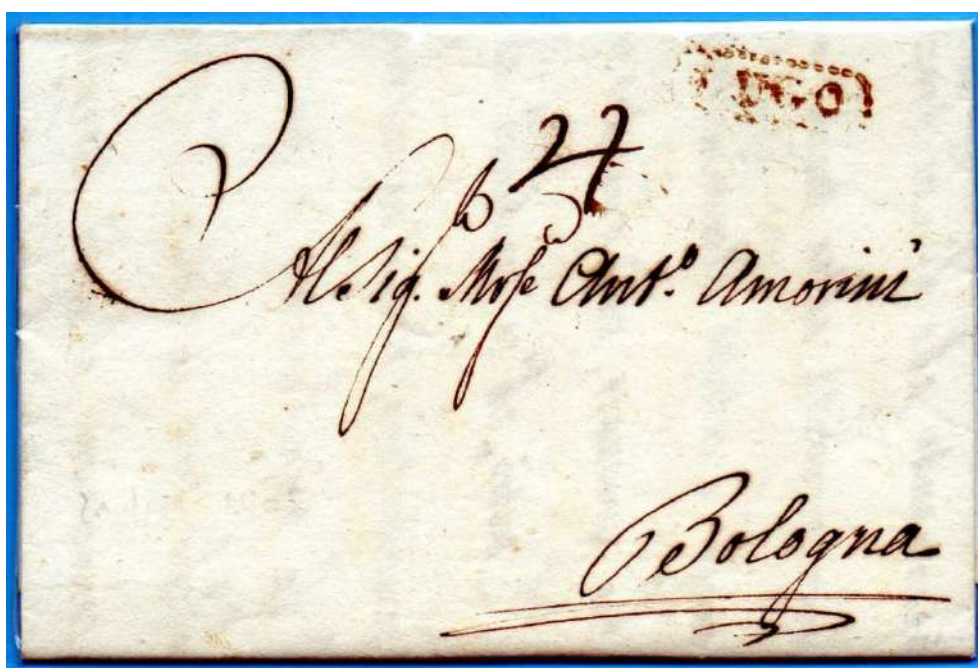 LUGO
4
Al Sig. Ant.º Amorini
Bologna